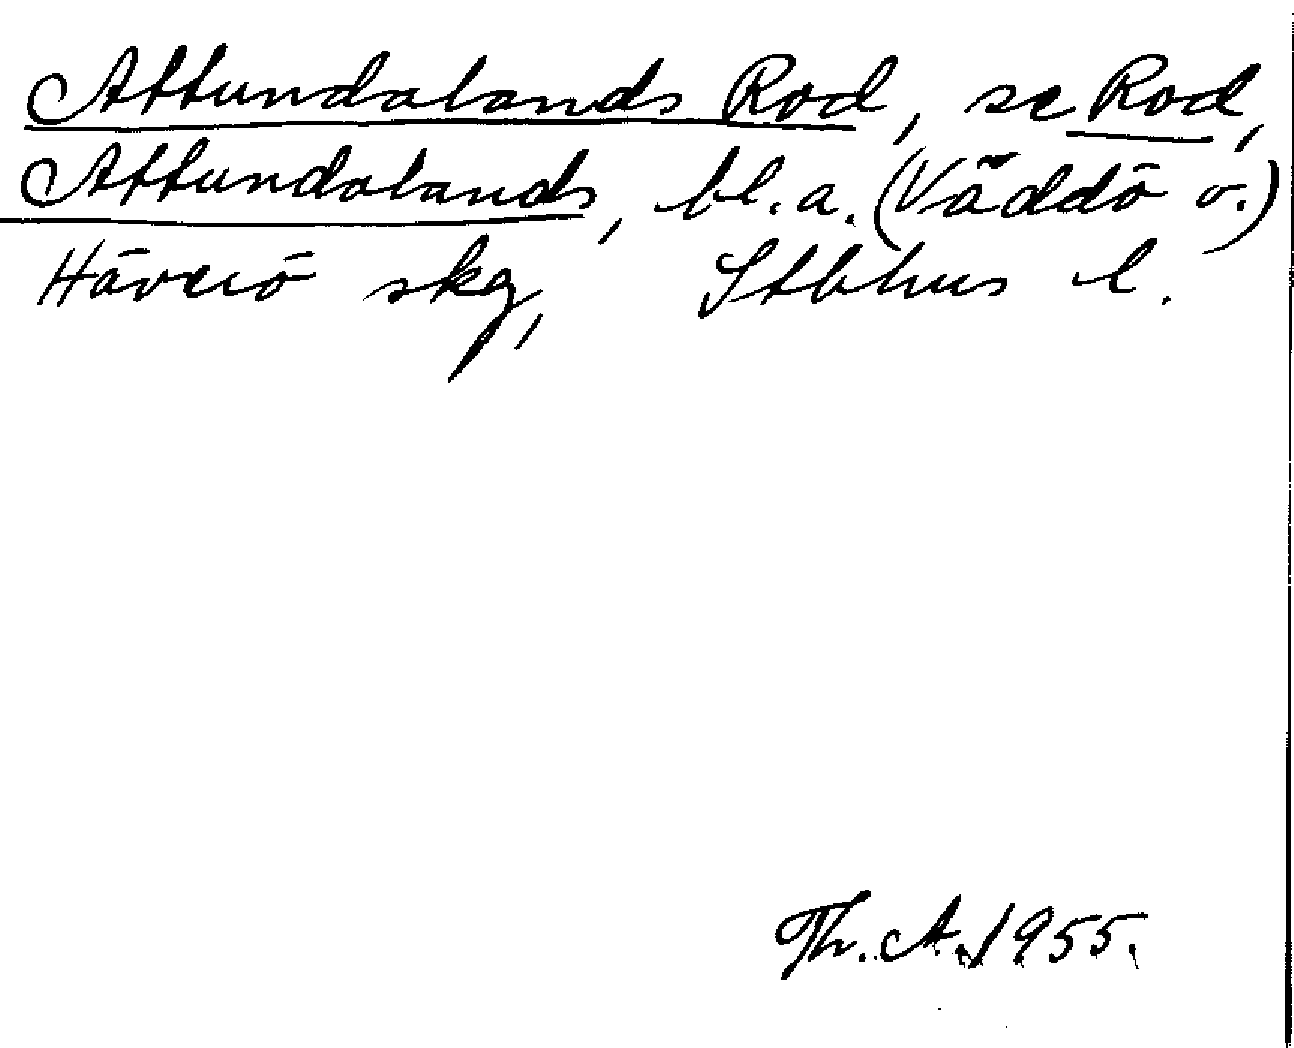 Attundalands Rod, se Rod,
Attundalands, bl.a. (Väddö o.)
Häverö skg, Stbhus l.
Th. A. 1955.